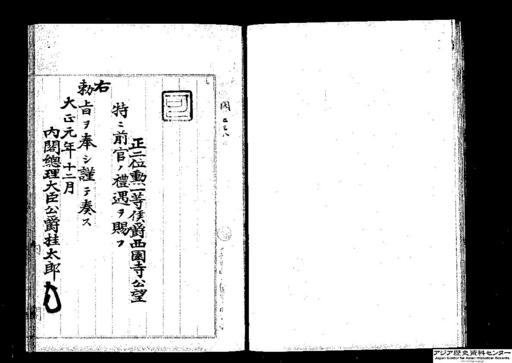 可
正二位勲一等侯爵西園寺公望
特ニ前官ノ禮遇ヲ賜フ
右
勅旨ヲ奉シ謹テ奏ス
大正元年十二月
内閣總理大臣公爵桂太郎
アジア歴史資料センター
Japan Center for Asian Historical Records